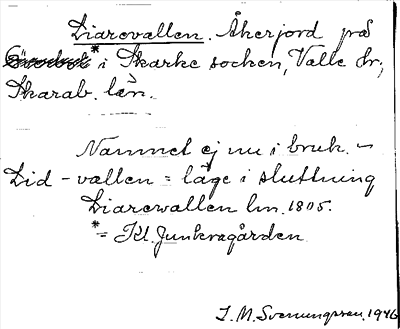 Liarevallen. Åkerjord på
* i Skarke socken, Valle hr;
Skarab. län.
Namnet ej nu i bruk. –
Lid – vallen = läge i sluttning
Liarewallen lm. 1805.
* = Kl. Junkragården
J. M. Svenungsson, 1946